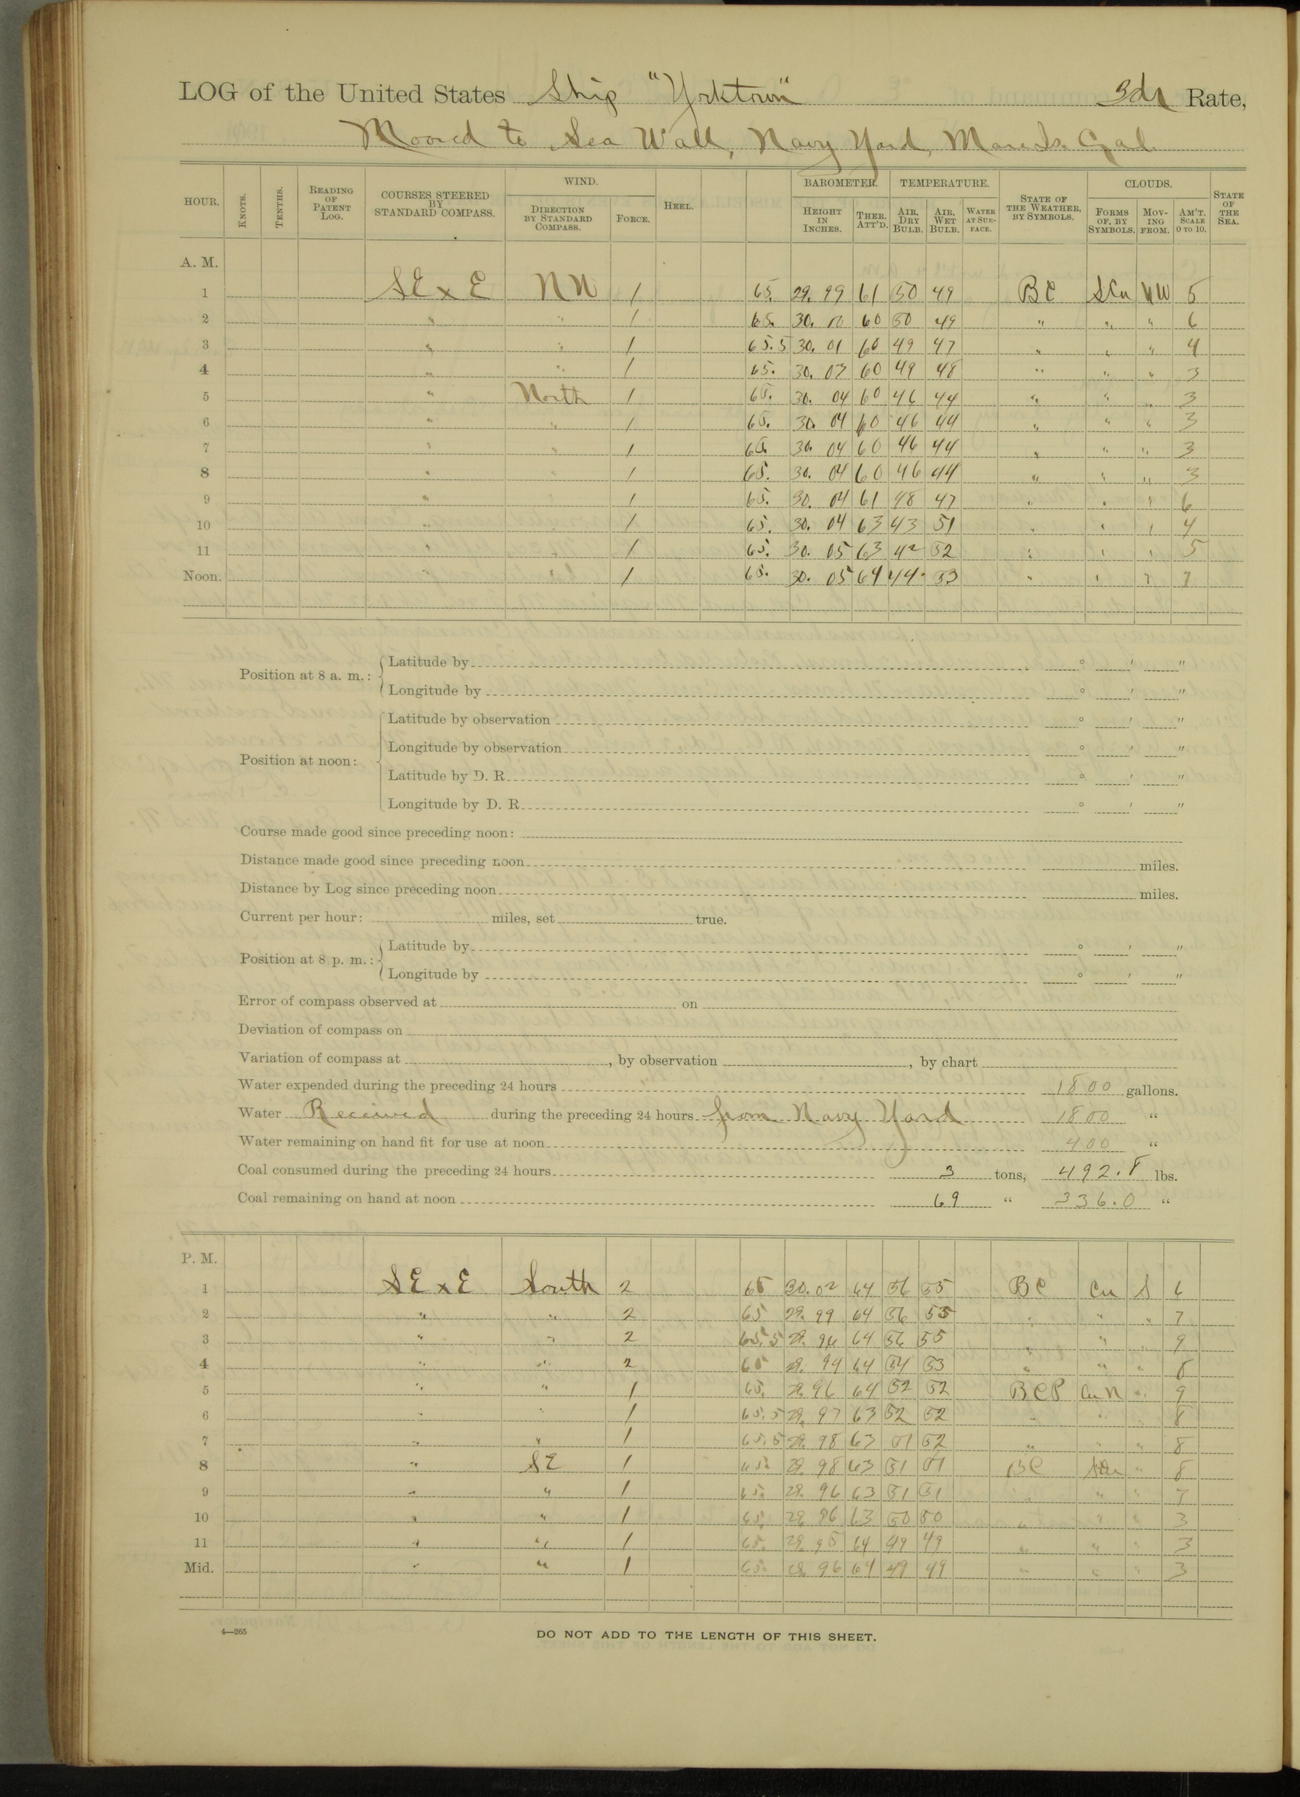 LOG of the United States Ship "Yorktown" 3d Rate,
Moored to Sea Wall, Navy Yard, Mare Is. Cal.
HOUR. KNOTS. TENTHS. READING OF PATENT LOG. COURSES STEERED BY STANDARD COMPASS. WIND. DIRECTION BY STANDARD COMPASS. FORCE. HEEL. BAROMETER. HEIGHT IN INCHES. THER. ATT'D. TEMPERATURE. AIR, DRY BULB. AIR, WET BULB. WATER AT SUR-FACE. STATE OF THE WEATHER, BY SYMBOLS. CLOUDS. FORMS OF, BY SYMBOLS. MOV-ING FROM. AM'T. SCALE 0 TO 10. STATE OF THE SEA.
A. M.
1 SE x E NW 1 65. 29. 99 61 50 49 BC SCu NW 5
2 " " 1 65. 30. 60 50 49 " " " 6
3 " " 1 65.5 30. 01 60 49 47 " " " 4
4 " " 1 65. 30. 03 60 49 48 " " " 3
5 " North 1 65. 30. 04 60 46 44 " " " 3
6 " " 1 65. 30. 04 60 46 44 " " " 3
7 " " 1 65. 30. 04 60 46 44 " " " 3
8 " " 1 65. 30. 04 60 46 44 " " " 3
9 " " 1 65. 30. 04 61 48 47 " " " 6
10 " " 1 65. 30. 04 63 43 51 " " " 4
11 " " 1 65. 30. 05 63 42 52 " " " 5
Noon. " " 1 65. 30. 05 64 44 53 " " " 7
Position at 8 a. m.: Latitude by ° ' "
Longitude by ° ' "
Position at noon: Latitude by observation ° ' "
Longitude by observation ° ' "
Latitude by D. R. ° ' "
Longitude by D. R. ° ' "
Course made good since preceding noon:
Distance made good since preceding noon miles.
Distance by Log since preceding noon miles.
Current per hour: miles, set true.
Position at 8 p. m.: Latitude by ° ' "
Longitude by ° ' "
Error of compass observed at on
Deviation of compass on
Variation of compass at , by observation , by chart
Water expended during the preceding 24 hours 1800 gallons.
Water Received during the preceding 24 hours from Navy Yard 1800 "
Water remaining on hand fit for use at noon 400 "
Coal consumed during the preceding 24 hours 3 tons, 492.8 lbs.
Coal remaining on hand at noon 69 " 336.0 "
P. M.
1 SE x E South 2 65 30.02 64 56 55 BC Cu S 6
2 " " 2 65 29. 99 64 56 55 " " " 7
3 " " 2 65.5 29. 96 64 56 55 " " " 9
4 " " 2 65 29. 94 64 54 53 " " " 8
5 " " 1 65. 29. 96 64 52 52 BCP Cu N " 9
6 " " 1 65.5 29. 97 63 52 52 " " " 8
7 " " 1 65.5 29. 98 63 51 52 " " " 8
8 " SE 1 65. 29. 98 63 51 51 BC " 8
9 " " 1 65. 29. 96 63 51 51 " " " 7
10 " " 1 65. 29. 96 63 50 50 " " " 3
11 " " 1 65. 29. 95 64 49 49 " " " 3
Mid. " " 1 65. 29. 96 64 49 49 " " " 3
4—265
DO NOT ADD TO THE LENGTH OF THIS SHEET.